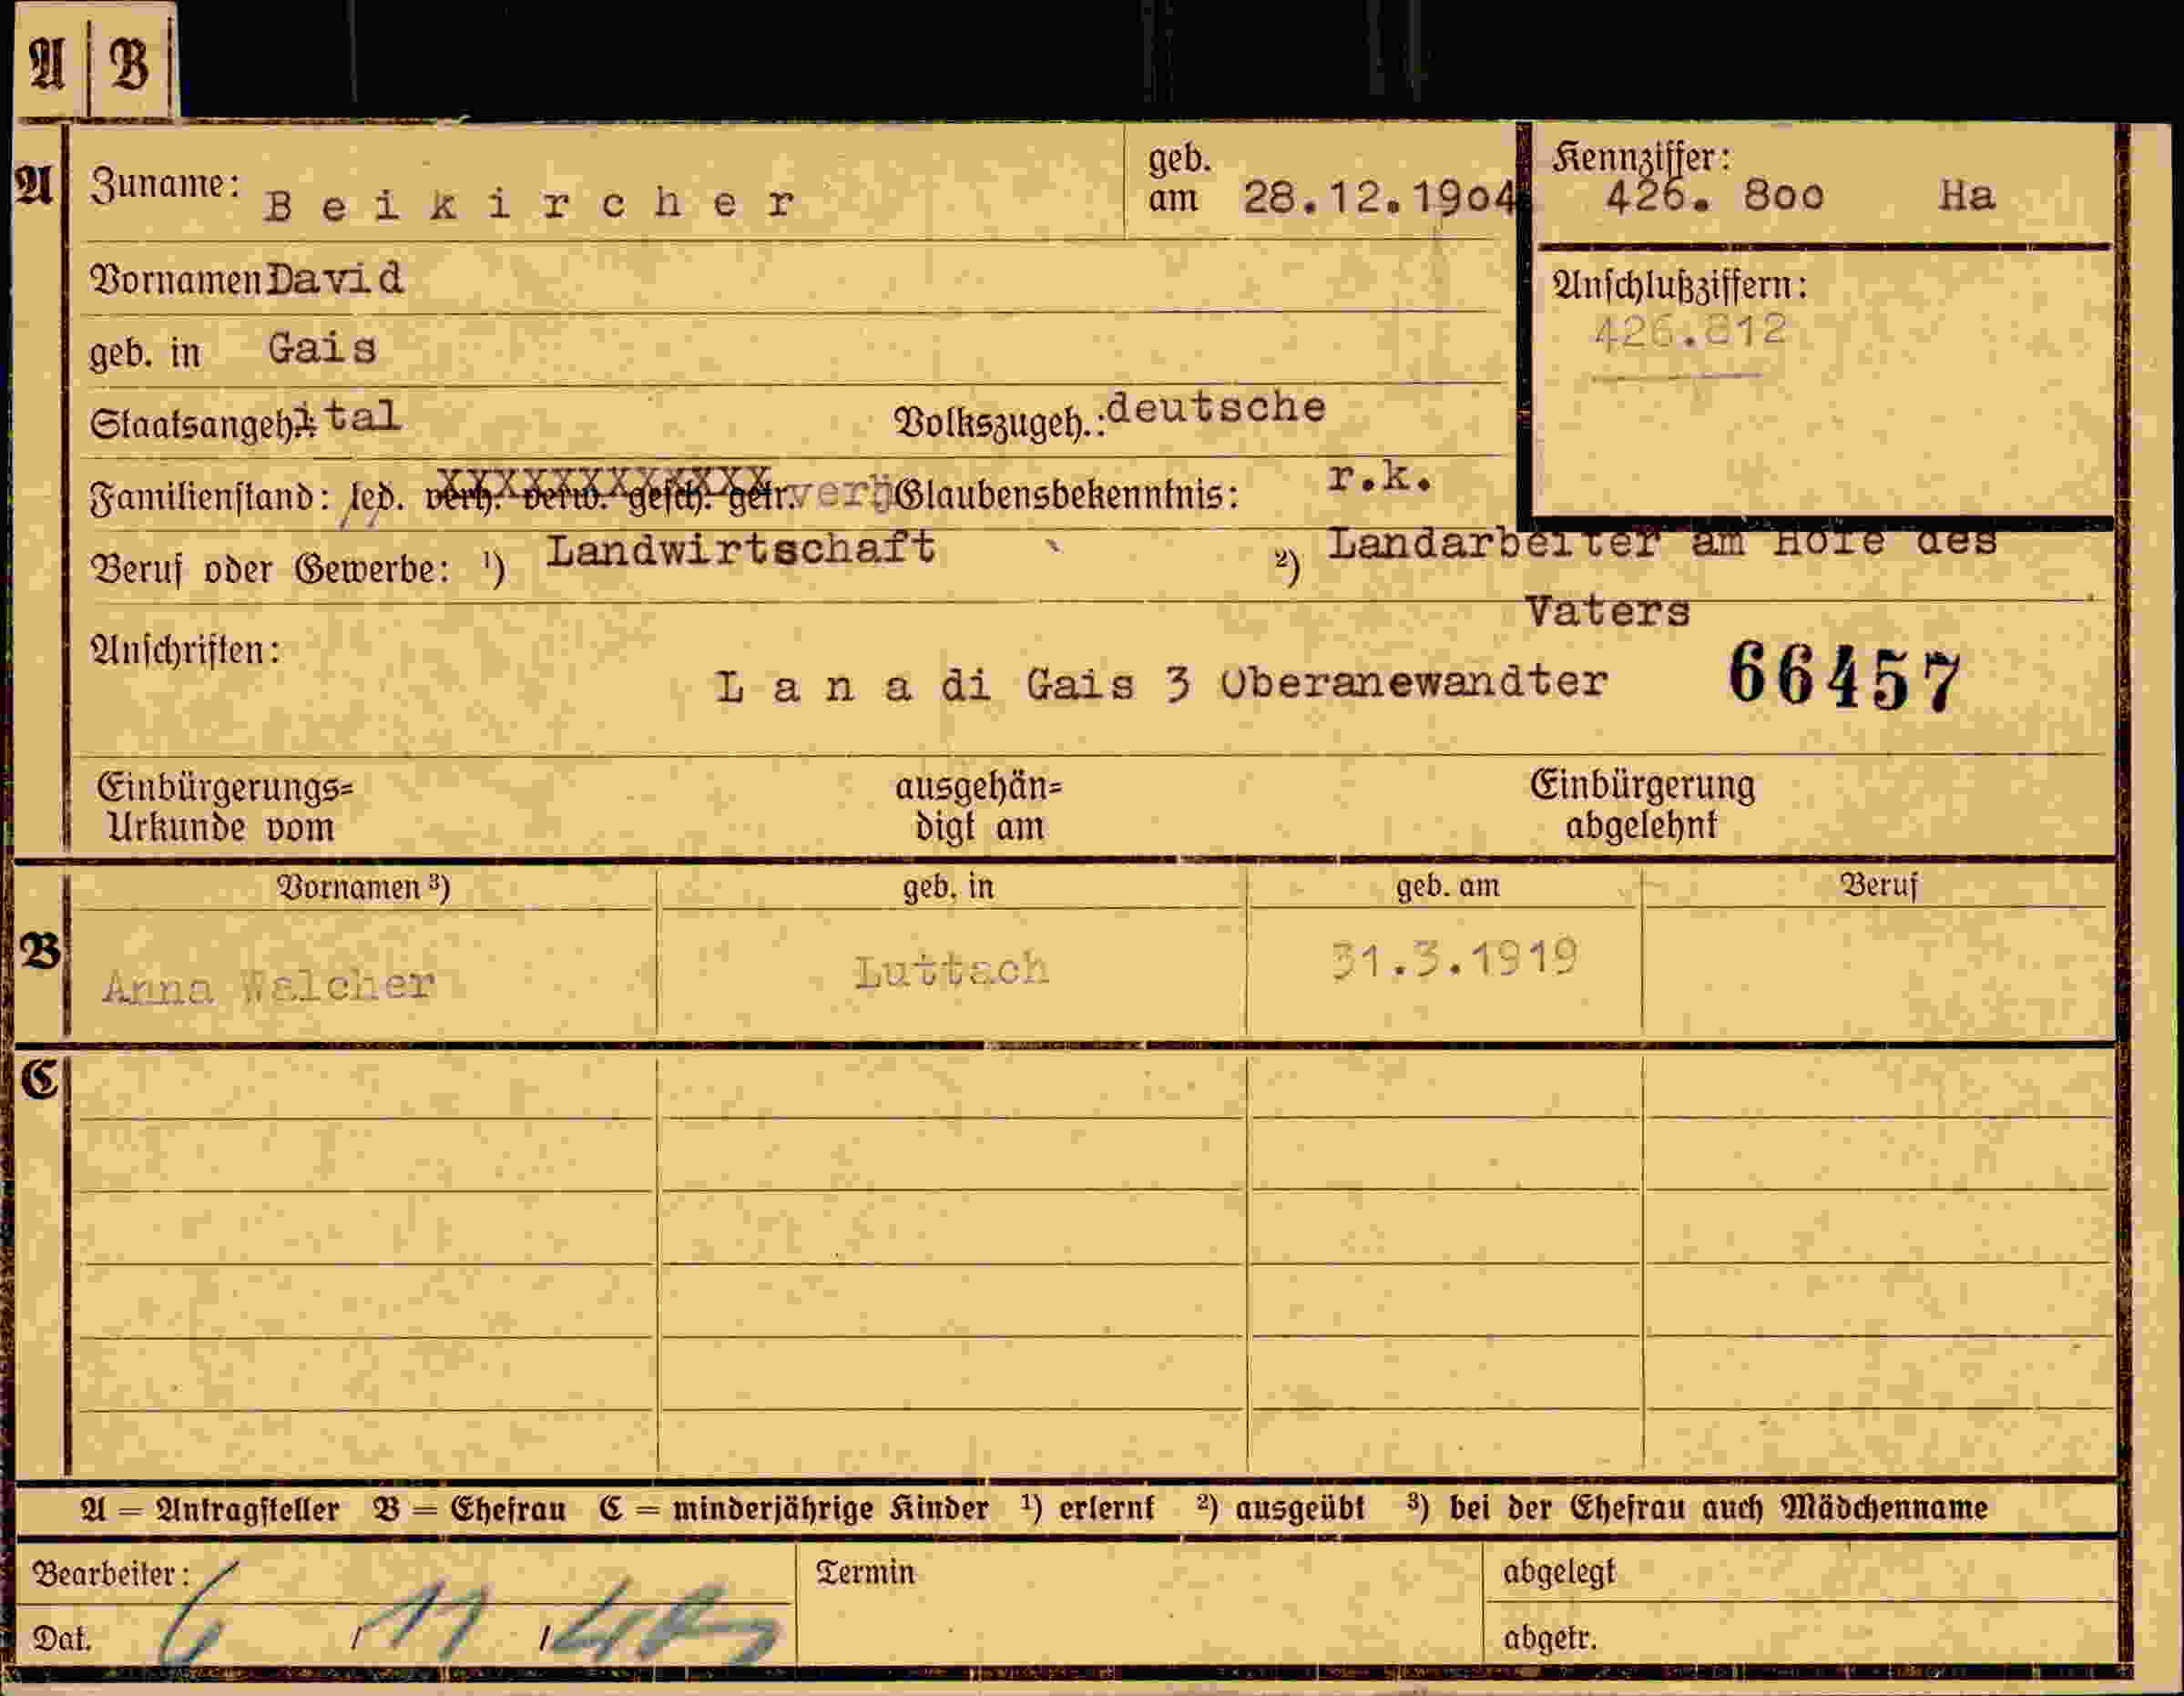 A B
A Zuname: Beikircher geb. am 28.12.1904 Kennziffer: 426. 800 Ha
Vornamen David
Anschlußziffern:
426.812
geb. in Gais
Staatsangeh.: ital Volkszugeh.: deutsche
Familienstand: led. verh. verw. gesch. getr. verh Glaubensbekenntnis: r.k.
Beruf oder Gewerbe: ¹) Landwirtschaft ²) Landarbeiter am Hofe des
Vaters
Anschriften:
Lana di Gais 3 Oberanewandter 66457
Einbürgerungs= ausgehän= Einbürgerung
Urkunde vom digt am abgelehnt
Vornamen ³) geb. in geb. am Beruf
B Anna Walcher Luttach 31.3.1919
C
A = Antragsteller B = Ehefrau C = minderjährige Kinder ¹) erlernt ²) ausgeübt ³) bei der Ehefrau auch Mädchenname
Bearbeiter: Termin abgelegt
Dat. 6 / 11 / abgetr.